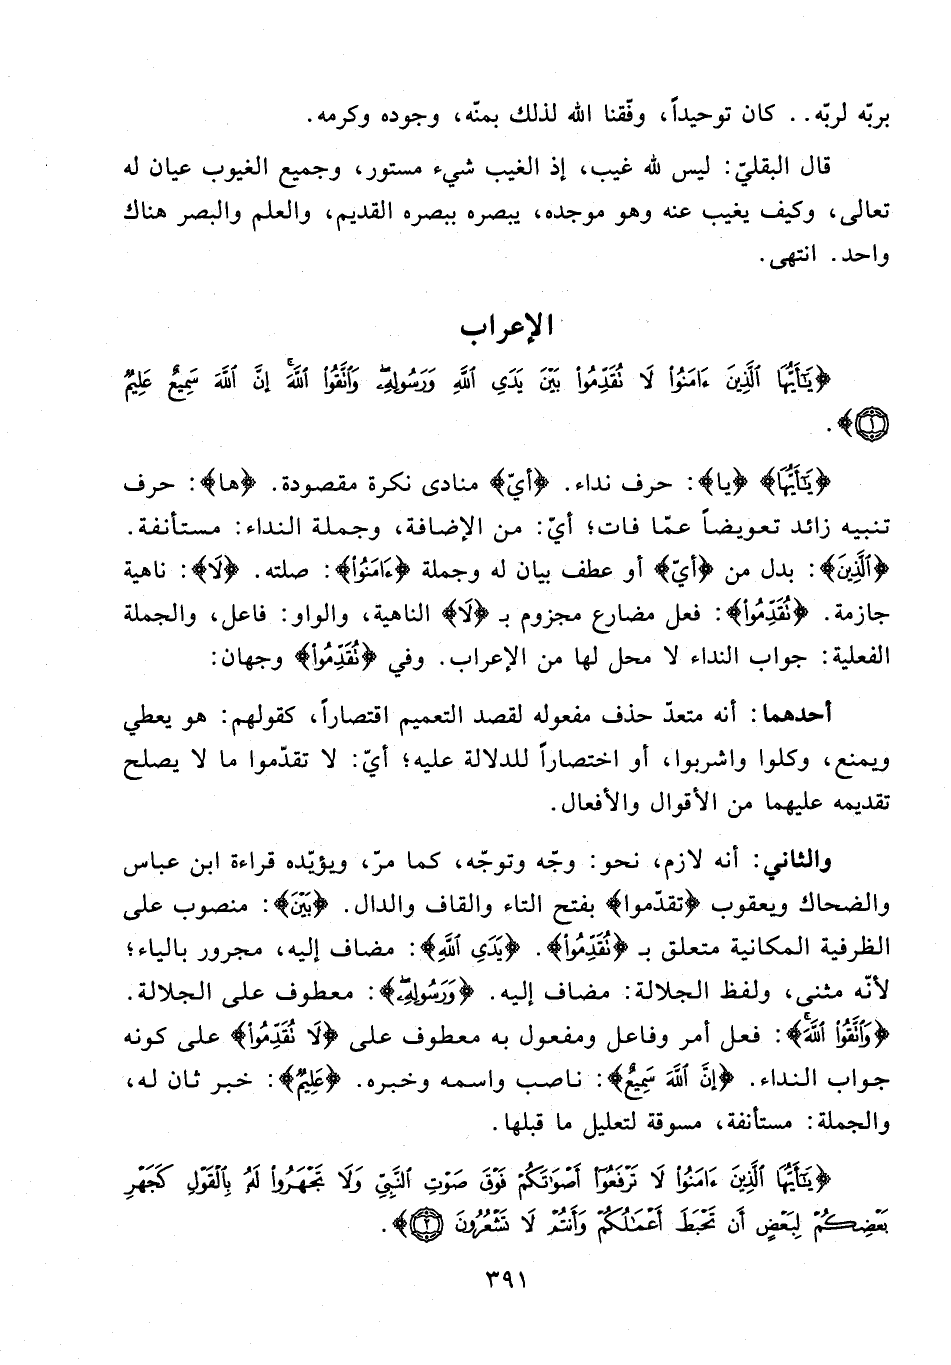 بربّه لربّه.. كان توحيداً، وفّقنا الله لذلك بمنّه، وجوده وكرمه.
قال البقليّ: ليس لله غيب، إذ الغيب شيء مستور، وجميع الغيوب عيان له
تعالى، وكيف يغيب عنه وهو موجده، يبصره ببصره القديم، والعلم والبصر هناك
واحد. انتهى.
الإعراب
﴿يَٰٓأَيُّهَا ٱلَّذِينَ ءَامَنُوا۟ لَا تُقَدِّمُوا۟ بَيْنَ يَدَىِ ٱللَّهِ وَرَسُولِهِۦۖ وَٱتَّقُوا۟ ٱللَّهَۚ إِنَّ ٱللَّهَ سَمِيعٌ عَلِيمٌ
﴿١﴾﴾.
﴿يَٰٓأَيُّهَا﴾ ﴿يا﴾: حرف نداء. ﴿أيّ﴾ منادى نكرة مقصودة. ﴿ها﴾: حرف
تنبيه زائد تعويضاً عمّا فات؛ أيّ: من الإضافة، وجملة النداء: مستأنفة.
﴿ٱلَّذِينَ﴾: بدل من ﴿أيّ﴾ أو عطف بيان له وجملة ﴿ءَامَنُوا۟﴾: صلته. ﴿لَا﴾: ناهية
جازمة. ﴿تُقَدِّمُوا۟﴾: فعل مضارع مجزوم بـ ﴿لَا﴾ الناهية، والواو: فاعل، والجملة
الفعلية: جواب النداء لا محل لها من الإعراب. وفي ﴿تُقَدِّمُوا۟﴾ وجهان:
أحدهما: أنه متعدّ حذف مفعوله لقصد التعميم اقتصاراً، كقولهم: هو يعطي
ويمنع، وكلوا واشربوا، أو اختصاراً للدلالة عليه؛ أيّ: لا تقدّموا ما لا يصلح
تقديمه عليهما من الأقوال والأفعال.
والثاني: أنه لازم، نحو: وجّه وتوجّه، كما مرّ، ويؤيّده قراءة ابن عباس
والضحاك ويعقوب ﴿تقدّموا﴾ بفتح التاء والقاف والدال. ﴿بَيْنَ﴾: منصوب على
الظرفية المكانية متعلق بـ ﴿تُقَدِّمُوا۟﴾. ﴿يَدَىِ ٱللَّهِ﴾: مضاف إليه، مجرور بالياء؛
لأنّه مثنى، ولفظ الجلالة: مضاف إليه. ﴿وَرَسُولِهِۦۖ﴾: معطوف على الجلالة.
﴿وَٱتَّقُوا۟ ٱللَّهَۚ﴾: فعل أمر وفاعل ومفعول به معطوف على ﴿لَا تُقَدِّمُوا۟﴾ على كونه
جواب النداء. ﴿إِنَّ ٱللَّهَ سَمِيعٌ﴾: ناصب واسمه وخبره. ﴿عَلِيمٌ﴾: خبر ثان له،
والجملة: مستأنفة، مسوقة لتعليل ما قبلها.
﴿يَٰٓأَيُّهَا ٱلَّذِينَ ءَامَنُوا۟ لَا تَرْفَعُوٓا۟ أَصْوَٰتَكُمْ فَوْقَ صَوْتِ ٱلنَّبِىِّ وَلَا تَجْهَرُوا۟ لَهُۥ بِٱلْقَوْلِ كَجَهْرِ
بَعْضِكُمْ لِبَعْضٍ أَن تَحْبَطَ أَعْمَٰلُكُمْ وَأَنتُمْ لَا تَشْعُرُونَ ﴿٢﴾﴾.
٣٩١